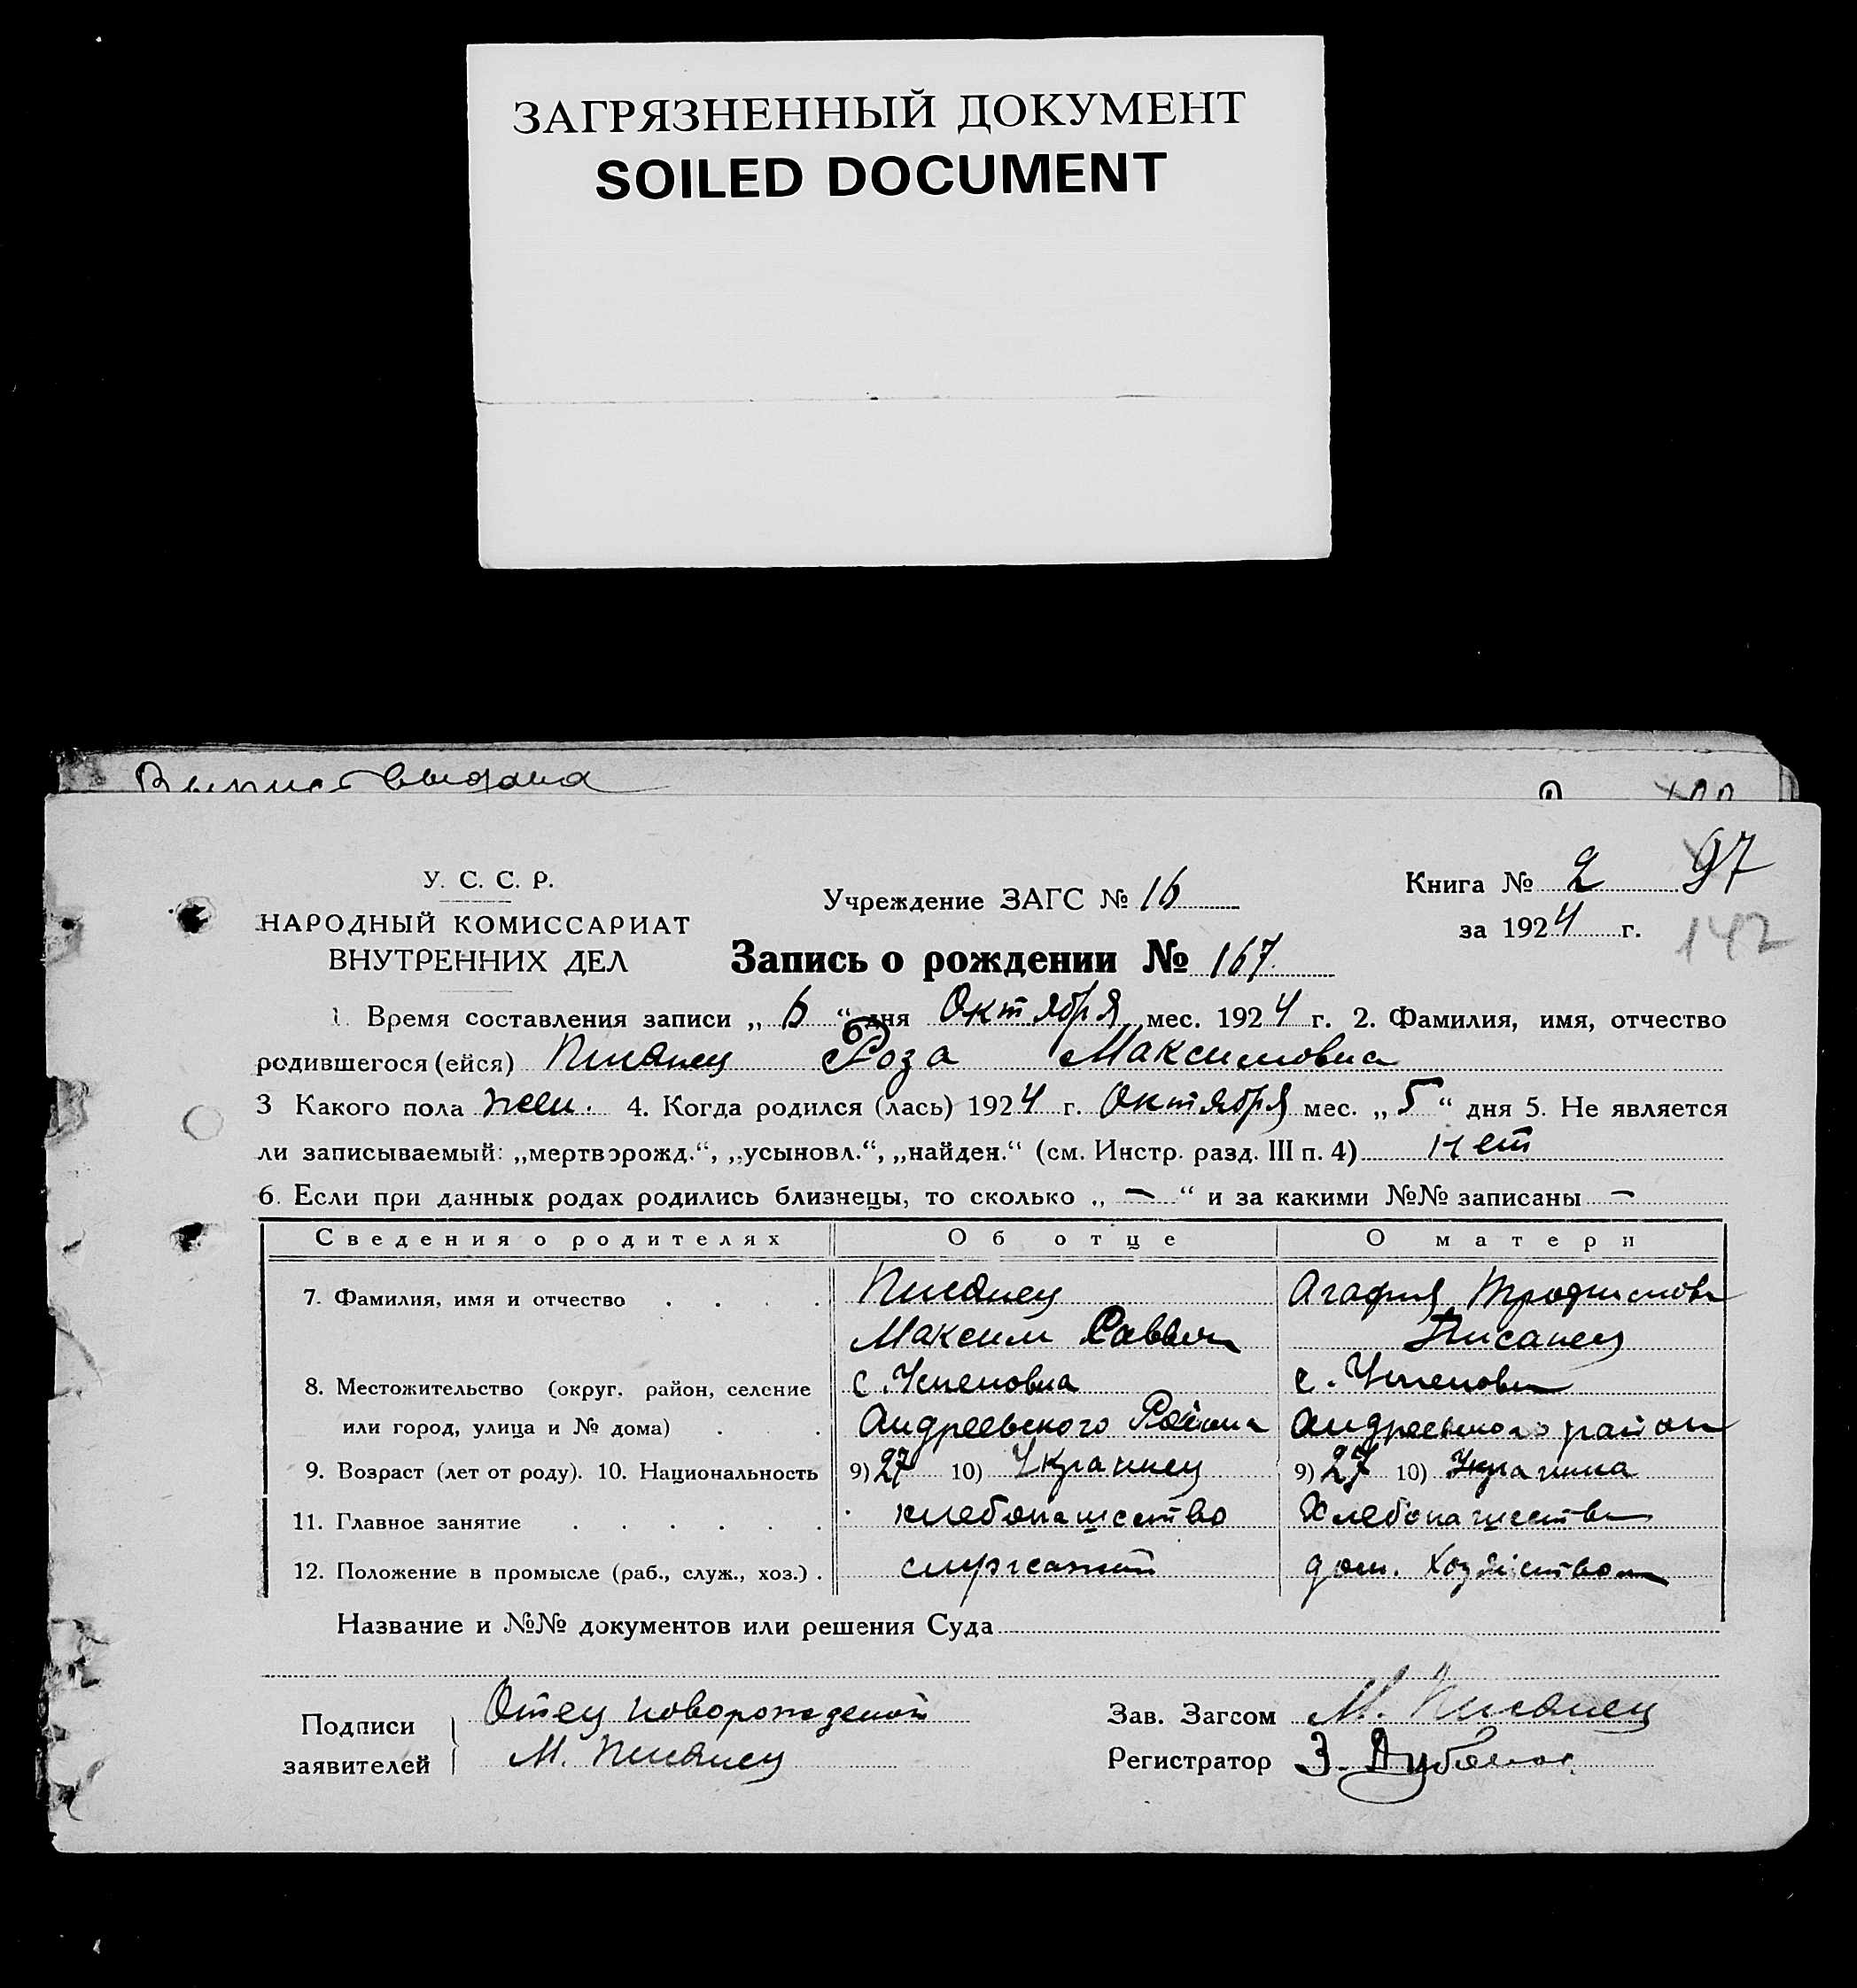 ЗАГРЯЗНЕННЫЙ ДОКУМЕНТ
SOILED DOCUMENT
выдана
У. С. С. Р.
НАРОДНЫЙ КОМИССАРИАТ
ВНУТРЕННИХ ДЕЛ
Учреждение ЗАГС № 16
Книга № 2 97
за 1924 г. 142
Запись о рождении № 167.
1. Время составления записи „ 6 “ дня Октября мес. 1924 г. 2. Фамилия, имя, отчество
родившегося (ейся) Писанец Роза Максимовна
3 Какого пола жен. 4. Когда родился (лась) 1924 г. Октября мес. „ 5 “ дня 5. Не является
ли записываемый: „мертворожд.“, „усыновл.“, „найден.“ (см. Инстр. разд. III п. 4) нет
6. Если при данных родах родились близнецы, то сколько „ — “ и за какими №№ записаны —
Сведения о родителях Об отце О матери
7. Фамилия, имя и отчество Писанец Агафия Трофимовн
Максим Саввич Писанец
8. Местожительство (округ, район, селение с. Успеновка с. Успеновки
или город, улица и № дома) Андреевского Района Андреевского район
9. Возраст (лет от роду). 10. Национальность 9) 27 10) Украинец 9) 27 10) Украинка
11. Главное занятие хлебопашество Хлебопашество
12. Положение в промысле (раб., служ., хоз.) служащий дом. хозяйством
Название и №№ документов или решения Суда
Подписи заявителей Отец новорожденой
М. Писанец
Зав. Загсом М. Писанец
Регистратор З.